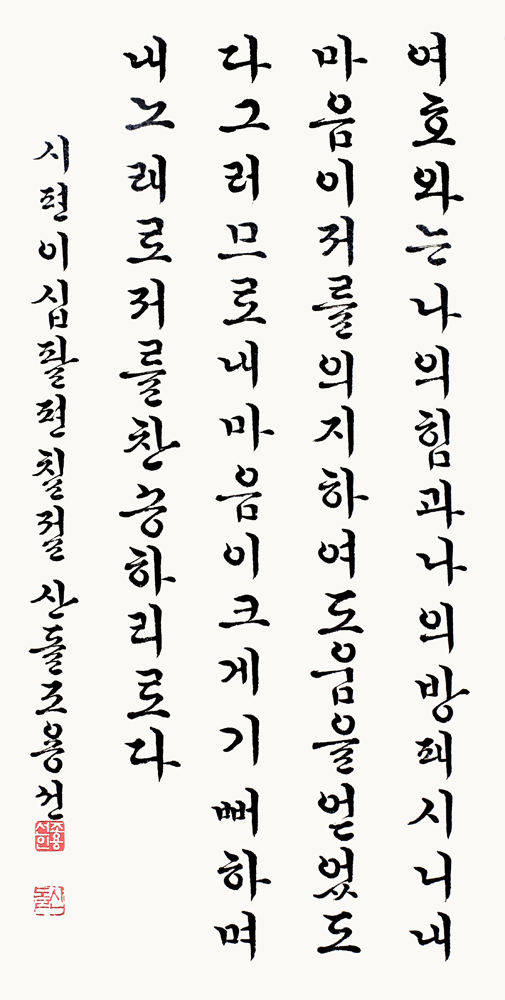 여호와는나의힘과나의방패시니내
마음이저를의지하여도움을얻었도
다그러므로내마음이크게기뻐하며
내노래로저를찬송하리로다
시편이십팔편칠절 산돌조용선
조용선인
산돌